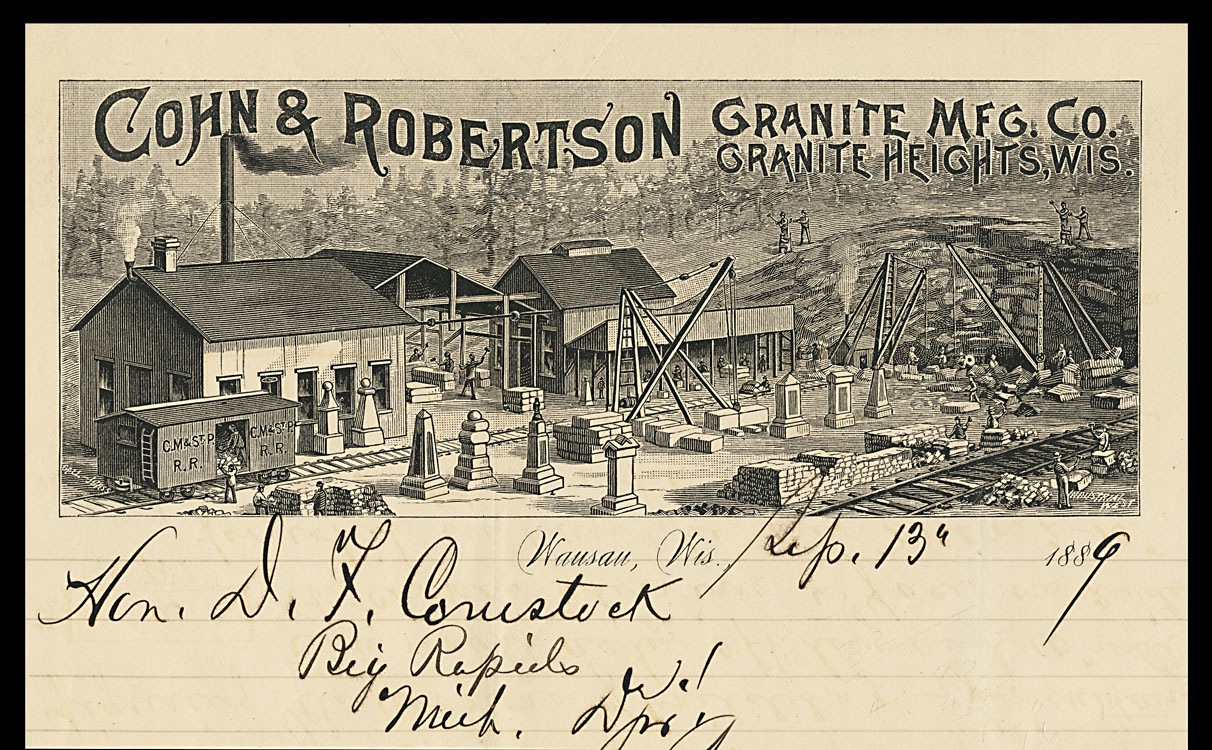 COHN & ROBERTSON
GRANITE MFG. CO.
GRANITE HEIGHTS, WIS.
C.M.& ST. P. R.R.
C.M.& ST. P. R.R.
INDUSTRIAL WEST
Wausau, Wis., Sep. 13" 1889
Hon. D. F. Comstock
Big Rapids
Mich.